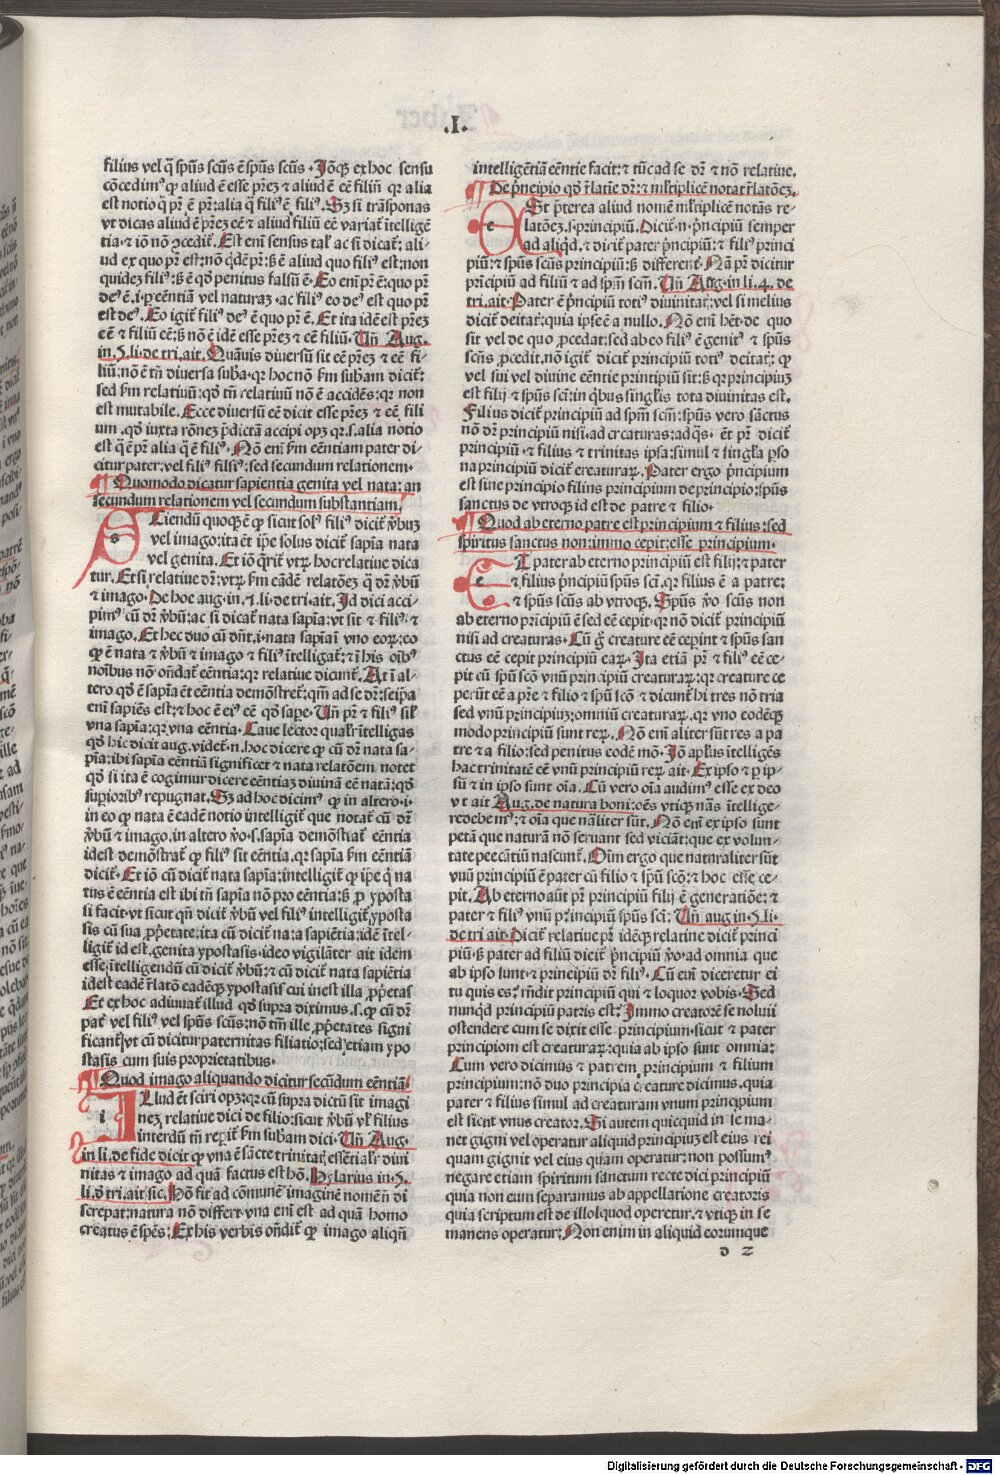 .I.
filius vel q̄ spūs scūs ē spūs scūs. Jōq; ex hoc sensu
cōcedim⁹ ꝙ aliud ē esse p̄rez ⁊ aliud ē eē filiū qr alia
est notio q̄ pr̄ ē pr̄: alia q̄ fili⁹ ē fili⁹. Sz si trāsponas
vt dicas aliud ē p̄rez eē ⁊ aliud filiū eē variat̄ ītelligē
tia. ⁊ iō nō ꝯcedit̄. Est enī sensus tal' ac si dicat̄: ali⸗
ud ex quo pr̄ est: nō q̄dē pr̄: s; ē aliud quo fili⁹ est: non
quidez fili⁹: s; ē qd̄ penitus falsū ē. Eo enī pr̄ ē: quo pr̄
de⁹ ē. i. p eēntiā vel naturaz. ac fili⁹ eo de⁹ est quo pr̄
est de⁹. Eo igit̄ fili⁹ de⁹ ē quo pr̄ ē. Et ita idē est p̄rez
eē ⁊ filiū eē: s; nō ē idē esse p̄rez ⁊ eē filiū. Uñ Aug.
in. 5. li. de tri. ait. Quāuis diversū sit eē p̄rez ⁊ eē fi⸗
liū: nō ē tñ diversa suba. qr hoc nō sm̄ subam dicit̄:
sed sm̄ relatiuū: qd̄ tñ relatiuū nō ē accidēs: qr non
est mutabile. Ecce diuersū eē dicit esse p̄rez ⁊ eē fili
um. qd̄ iuxta rōnez p̄dictā accipi opz qr. s. alia notio
est q̄ ē pr̄ alia q̄ ē fili⁹. Nō enī sm̄ eēntiam pater di⸗
citur pater: vel fili⁹ fili⁹: sed secundum relationem.
¶ Quomodo dicatur sapientia genita vel nata: an
secundum relationem vel secundum substantiam.
s Ciendū quoq; ē ꝙ sicut sol⁹ fili⁹ dicit̄ v̄buz
vel imago: ita ēt ip̄e solus dicit̄ sapīa nata
vel genita. Et iō q̄rit̄ vtꝝ hoc relatiue dica
tur. Et si relatiue dr̄: vtꝝ sm̄ eādē relatōez q̄ dr̄ v̄bū
⁊ imago. De hoc aug. in. 7. li. de tri. ait. Id dici acci⸗
pim⁹ cū dr̄ v̄bū: ac si dicat̄ nata sapīa: vt sit ⁊ fili⁹. ⁊
imago. Et hec duo cū dn̄t. i. nata sapīa ī vno eoꝝ: eo
ꝙ ē nata ⁊ v̄bū ⁊ imago ⁊ fili⁹ ītelligat̄: ⁊ ī his oīb⁹
noībus nō on̄dat̄ eēntia: qr relatiue dicunt̄. At ī al⸗
tero qd̄ ē sapīa ēt eēntia demōstret̄: qm̄ ad se dr̄: seip̄a
enī sapiēs est: ⁊ hoc ē ei⁹ eē qd̄ sape. Uñ pr̄ ⁊ fili⁹ sil'
vna sapīa: qr vna eēntia. Caue lector qualr̄ ītelligas
qd̄ hic dicit aug. videt̄. n. hoc dicere ꝙ cū dr̄ nata sa⸗
pīa: ibi sapīa eēntiā significet ⁊ nata relatōem notet
qd̄ si ita ē cogimur dicere eēntiaz diuinā eē natā: qd̄
supiorib⁹ repugnat. Sz ad hoc dicim⁹ ꝙ in altero. i.
in eo ꝙ nata ē eadē notio intelligit̄ que notat̄ cū dr̄
v̄bū ⁊ imago. in altero v̄o. s. sapīa demōstrat̄ eēntia
id est demōstrat̄ ꝙ fili⁹ sit eēntia. qr sapīa sm̄ eēntiā
dicit̄. Et iō cū dicit̄ nata sapīa: intelligit̄ ꝙ ip̄e q̄ na
tus ē eēntia est ibi tñ sapīa nō pro eēntia: s; p yposta
si facit. vt sicut qñ dicit̄ v̄bū vel fili⁹ intelligit̄ yposta
sis cū sua p̄prietate: ita cū dicit̄ nata sapiētia: idē ītel⸗
ligit̄ id est. genita ypostasis. ideo vigilāter ait idem
esse ītelligendū cū dicit̄ v̄bū: ⁊ cū dicit̄ nata sapiētia
id est eadē r̄latō eadēq; ypostasis cui inest illa p̄prietas
Et ex hoc adiuuat̄ illud qd̄ supra diximus. s. ꝙ cū dr̄
pat̄ vel fili⁹ vel spūs scūs: nō tm̄ ille p̄prietates signi
ficant̄: vt cū dicitur paternitas filiatio: sed etiam ypo
stasis cum suis proprietatibus.
¶ Quod imago aliquando dicitur secūdum eēntiā.
i Llud ēt sciri opz: qr cū supra dictū sit imagi
nez relatiue dici de filio: sicut v̄bū vl' filius
interdū tñ reperit̄ sm̄ subam dici. Uñ Aug.
in li. de fide dicit ꝙ vna ē sācte trinitat̄ essētialr̄ diui
nitas ⁊ imago ad quā factus est hō. Hylarius in. 5.
li. d̄ tri. ait. sic. Hō fit ad cōmunē imaginē nomē n̄ di
screpat: natura nō differt. vna enī est ad quā homo
creatus ē spēs. Ex his verbis on̄dit̄ ꝙ imago aliqñ
intelligētiā eēntie facit: ⁊ tūc ad se dr̄ ⁊ nō relatiue.
¶ De p̄ncipio qd̄ r̄latie dr̄: ⁊ ml'tiplicē notat r̄latōez.
e St p̄terea aliud nomē ml'tiplicē notās re⸗
latōez. s. principiū. Dicit̄. n. p̄ncipiū semper
ad aliqd. ⁊ dicit̄ pater p̄ncipiū: ⁊ fili⁹ princi
piū: ⁊ spūs scūs principiū: s; differēt̄. Nā pr̄ dicitur
principiū ad filiū ⁊ ad spm̄ scm̄. Uñ Aug. in li. 4. de
tri. ait. Pater ē p̄ncipiū toti⁹ diuinitat̄: vel si melius
dicit̄ deitat̄: quia ipse ē a nullo. Nō enī het̄. de quo
sit vel de quo ꝓcedat: sed ab eo fili⁹ ē genit⁹ ⁊ spūs
scūs ꝓcedit. nō igit̄ dicit̄ principiū toti⁹ deitat̄: ꝙ
vel sui vel diuine eēntie principiū sit: s; qr principiuz
est filij ⁊ spūs scī: in qb̄us singl'is tota diuinitas est.
Filius dicit̄ principiū ad spm̄ scm̄: spūs vero sāctus
nō dr̄ principiū nisi. ad creaturas: ad qs̄. ēt pr̄ dicit̄
principiū. ⁊ filius ⁊ trinitas ipsa: simul ⁊ singl'a ꝑso
na principiū dicit̄ creaturaꝝ. Pater ergo p̄ncipium
est sine principio filius principium de principio: spūs
sanctus de vtroq; id est de patre ⁊ filio.
¶ Quod ab eterno patre est principium ⁊ filius: sed
spiritus sanctus non: immo cepit: esse principium.
e T pater ab eterno principiū est filij: ⁊ pater
⁊ filius p̄ncipiū spūs scī. qr filius ē a patre:
⁊ spūs scūs ab vtroq;. Spūs v̄o scūs non
ab eterno prīcipiū ē sed eē cepit. qr nō dicit̄ principiū
nisi ad creaturas. Cū g̊ creature eē cepint ⁊ spūs san
ctus eē cepit principiū eaꝝ. Ita etiā pr̄ ⁊ fili⁹ eē ce⸗
pit cū spū scō vnū principiū creaturaꝝ: qr creature ce
perūt eē a pr̄e ⁊ filio ⁊ spū scō ⁊ dicunt̄ hi tres nō tria
sed vnū principiuz: omniū creaturaꝝ. qr vno eodēq;
modo principiū sunt reꝝ. Nō enī aliter sūt res a pa
tre ⁊ a filio: sed penitus eodē mō. Jō apl'us ītelligēs
hac trinitatē eē vnū principiū reꝝ ait. Ex ipso ⁊ p ip⸗
sū ⁊ in ipso sunt oīa. Cū vero oīa audim⁹ esse ex deo
vt ait Aug. de natura boni: oēs vtiq; nās ītellige⸗
re debem⁹: ⁊ oīa que nāliter sūt. Nō enī ex ipso sunt
petā que naturā nō seruant sed viciāt: que ex volun⸗
tate peccātiū nascunt̄. Oīm ergo que naturaliter sūt
vnū principiū ē pater cū filio ⁊ spū scō: ⁊ hoc esse ce⸗
pit. Ab eterno aūt pr̄ principiū filij ē generatiōe: ⁊
pater ⁊ fili⁹ vnū principiū spūs scī: Uñ aug in. 5. li.
de tri ait. Dicit̄ relatiue pr̄ idēq; relatiue dicit̄ princi
piū. s; pater ad filiū dicit̄ p̄ncipiū v̄o. ad omnia que
ab ipso sunt. ⁊ principiū dr̄ fili⁹. Cū enī diceretur ei
tu quis es: r̄ndit principiū qui ⁊ loquor vobis. Sed
nunqd principiū patris est: Immo creatorē se noluit
ostendere cum se dixit esse principium. sicut ⁊ pater
principiom est creaturaꝝ: quia ab ipso sunt omnia:
Cum vero dicimus ⁊ patrem principium ⁊ filium
principium: nō duo principia creature dicimus. quia
pater ⁊ filius simul ad creaturam vnum principium
est sicut vnus creator. Si autem quicquid in se ma⸗
net gigni vel operatur aliquid principium est eius rei
quam gignit vel eius quam operatur: non possum⁹
negare etiam spiritum sanctum recte dici principiū
quia non eum separamus ab appellatione creatoris
quia scriptum est de illo ꝙ operetur. ⁊ vtiq; in se
manens operatur: Non enim in aliquid eorumque
d 2
Digitalisierung gefördert durch die Deutsche Forschungsgemeinschaft - DFG